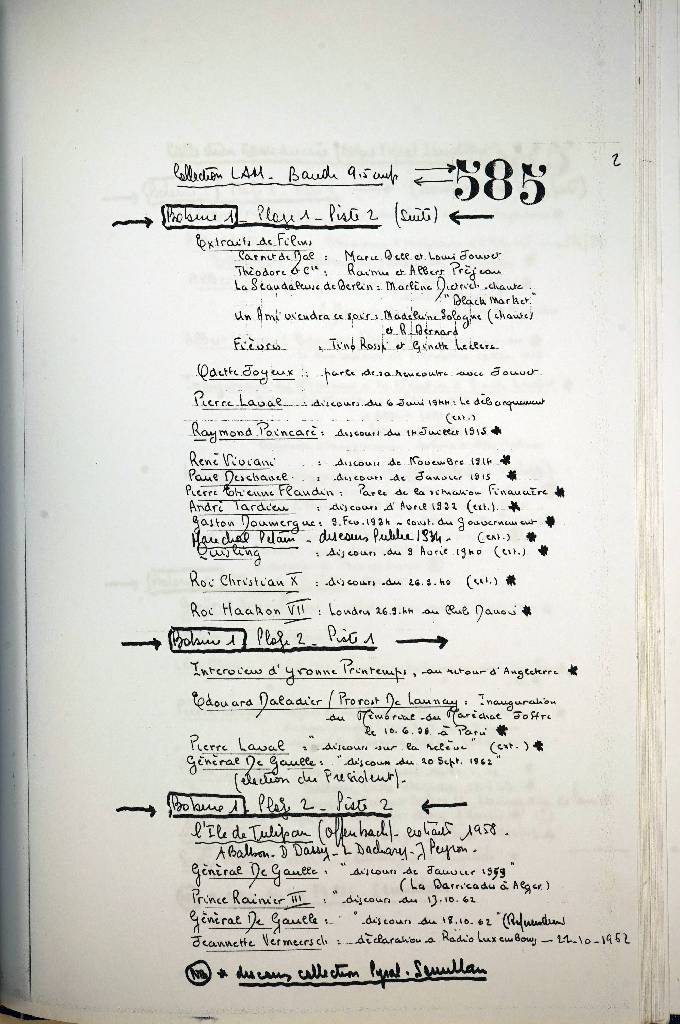 2
Collection LAM - Bande 9.5 cm/s 585
Bobine 1 - Plage 1 - Piste 2 (suite)
Extraits de Films
Carnet de Bal : Marie Bell et Louis Jouvet
Théodore et Cie : Raimu et Albert Préjean
La Scandaleuse de Berlin : Marlène Dietrich chante
"Black Market"
Un Ami viendra ce soir : Madeleine Sologne (chante)
et R. Bernard
Fièvres : Tino Rossi et Ginette Leclerc
Odette Joyeux : parle de sa rencontre avec Jouvet
Pierre Laval : discours du 6 Juin 1944 : Le débarquement
(ext.)
Raymond Poincaré : discours du 14 Juillet 1915 *
René Viviani : discours de Novembre 1914 *
Paul Deschanel : discours de Janvier 1915 *
Pierre Etienne Flandin : Parle de la situation Financière *
André Tardieu : discours d'Avril 1932 (ext.) *
Gaston Doumergue : 9. Fev. 1934 - const. du Gouvernement *
Marechal Petain - discours Public 1934 - (ext.) *
Quisling : discours du 9 Avril 1940 (ext.) *
Roi Christian X : discours du 26.9.40 (ext.) *
Roi Haakon VII : Londres 26.9.44 au Club Danois *
Bobine 1 Plage 2 - Piste 1
Interview d'Yvonne Printemps, au retour d'Angleterre *
Edouard Daladier / Provost De Launay : Inauguration
du Mémorial du Maréchal Joffre
le 10.6.38 à Paris *
Pierre Laval : "discours sur la relève" (ext.) *
Général De Gaulle : "discours du 20 Sept. 1962"
(élection du Président).
Bobine 1 Plage 2 - Piste 2
L'Ile de Tulipan (Offenbach) - extraits 1958.
A Balbon - D Dassy - L Dachary - J Peyron.
Général De Gaulle : "discours de Janvier 1959"
(La Barricades à Alger)
Prince Rainier III : "discours du 13.10.62
Général De Gaulle : "discours du 18.10.62" (Référendum)
Jeannette Vermeersch : déclaration a Radio Luxembourg - 22-10-1962
NB * discours collection Pyral -